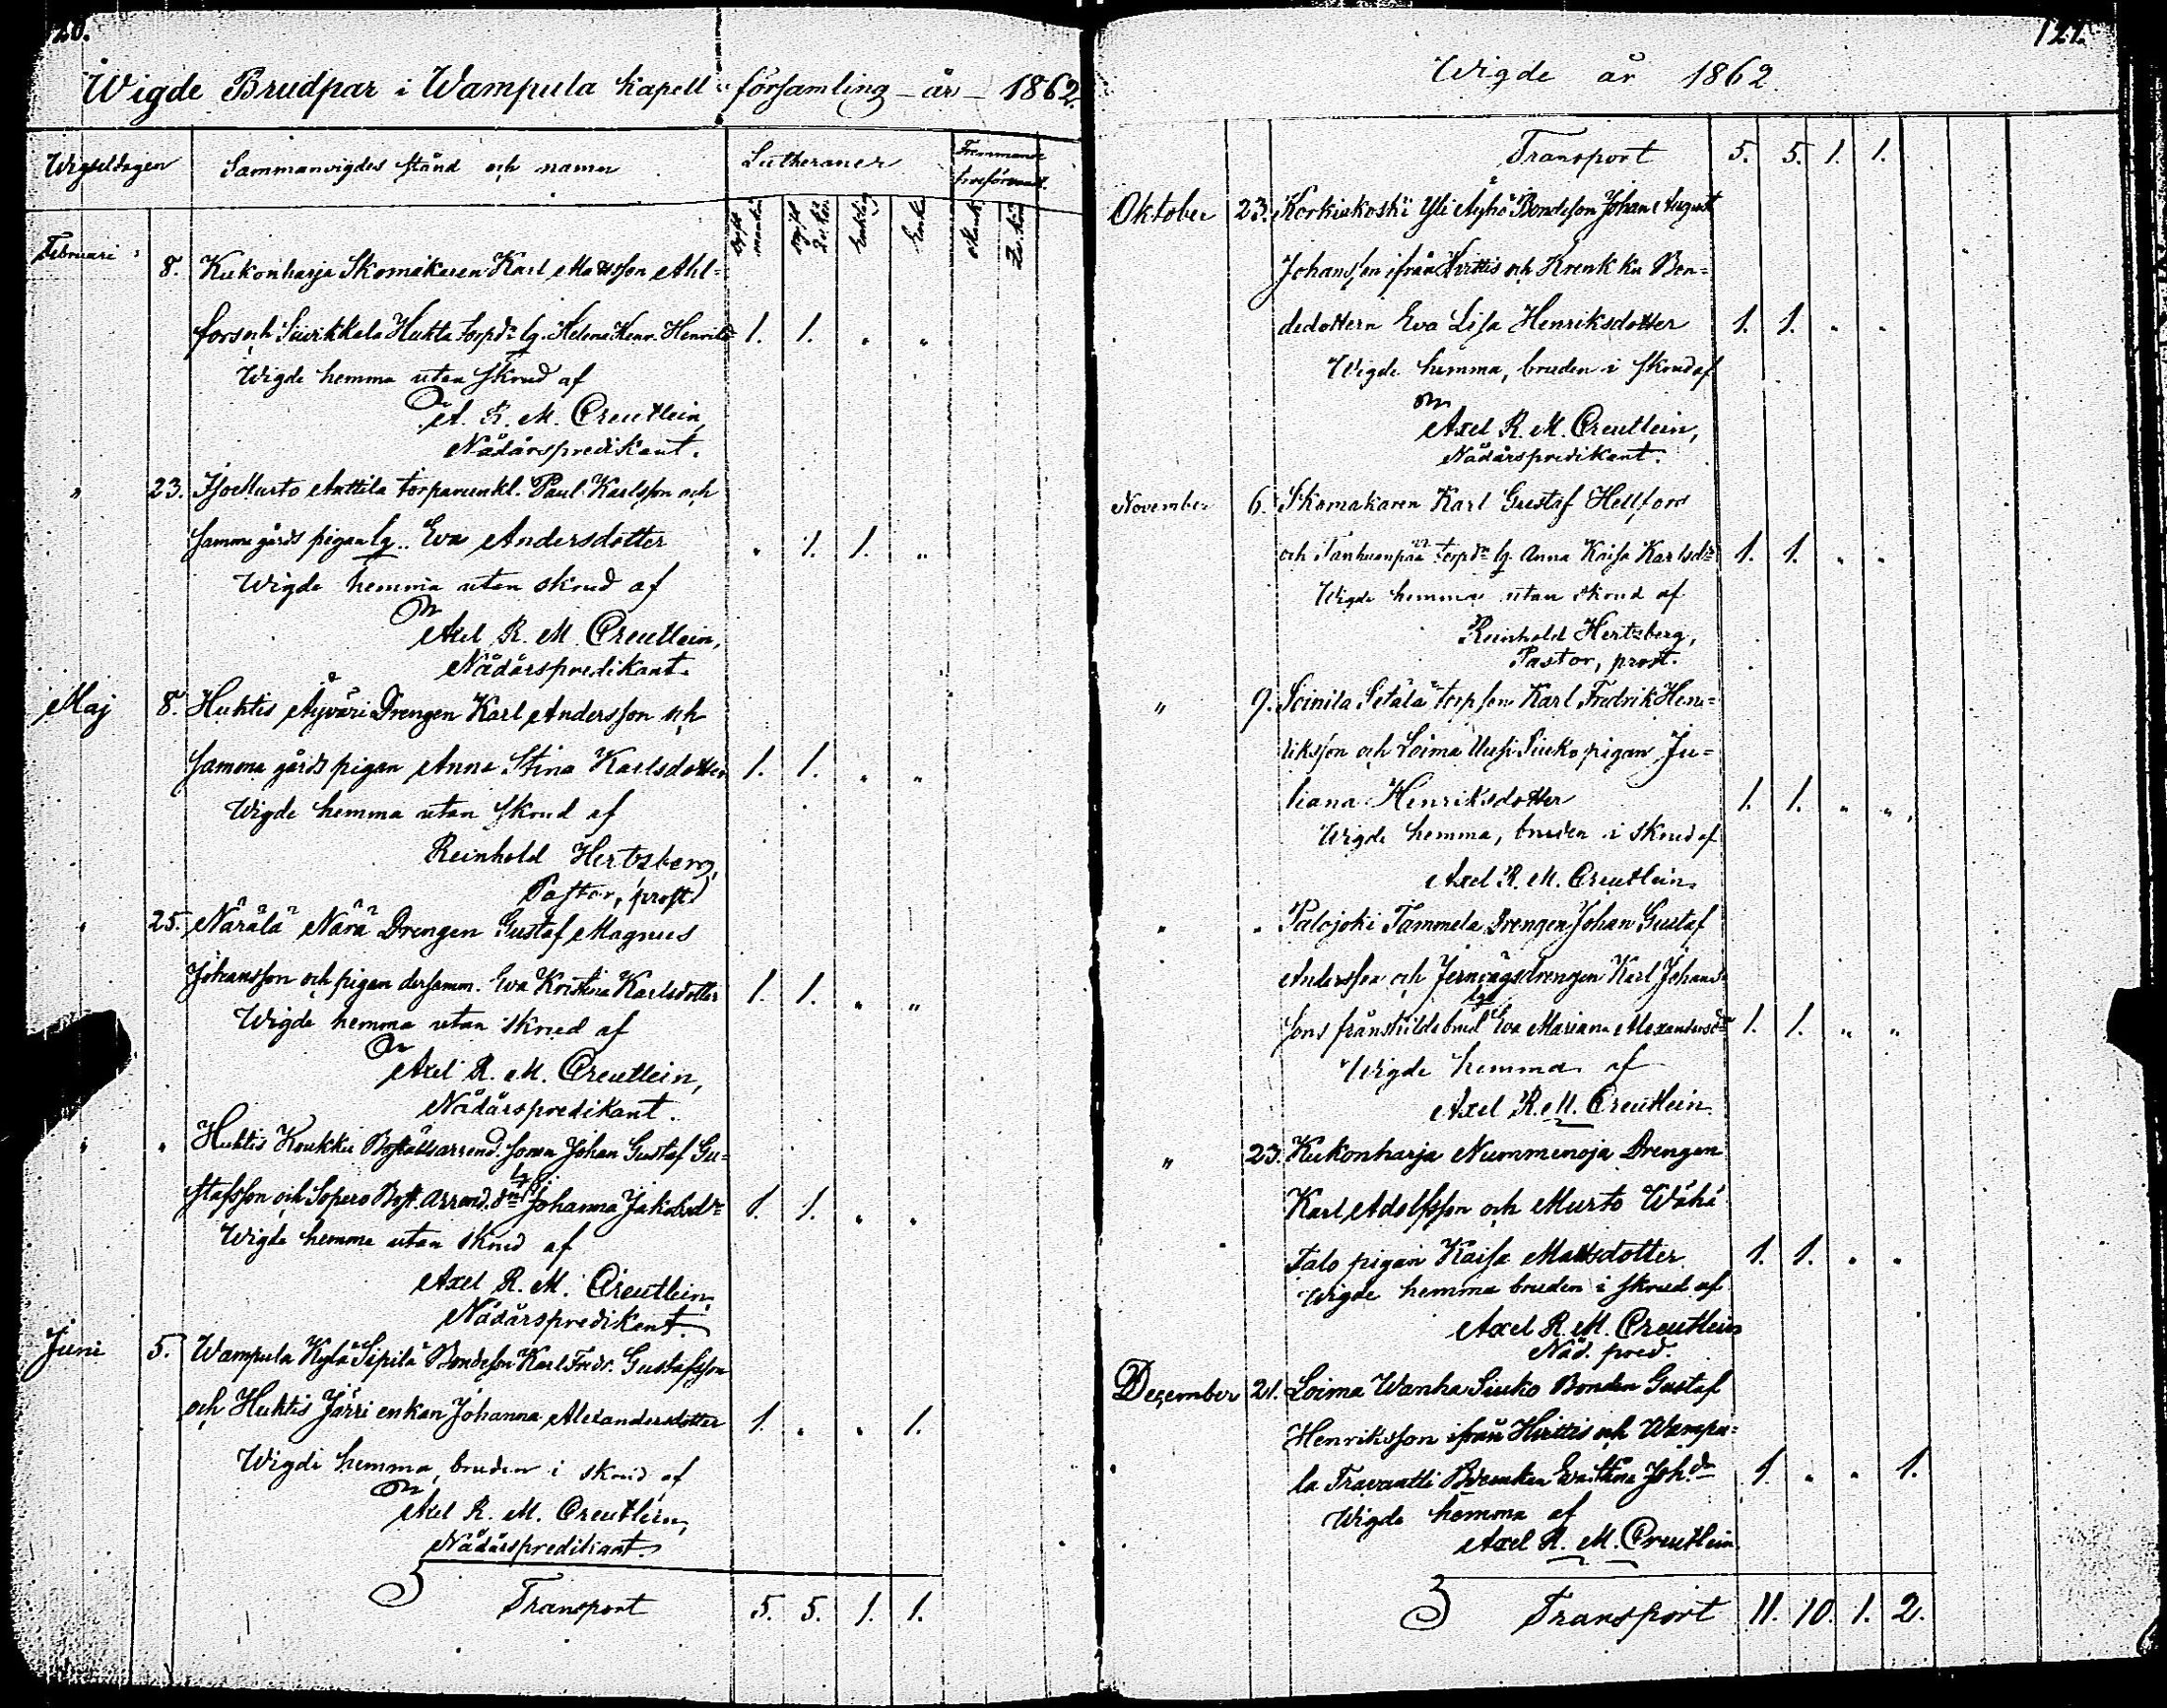 120.
Wigde Brudpar i Wampula Kapell församling år 1862
Wigseldagen Sammanvigdes stånd och namn Lutheraner Fremmande
ogift mankön ogift Enkling Enka
Februari 8. Kukonharja Skomakaren Karl Matsson Ahl=
fors och Suikkela Huhta torpdr lg. Helena Henr. 1. 1. " "
Wigde hemma utan skrud af
A. R. M. Creutlein,
Nådårspredikant.
" 23. Murto Anttila torparenkl. Paul Karlsson och
samma gårds pigan lg. Eva Andersdotter " 1. 1. "
Wigde hemma utan skrud af
Axel R. M. Creutlein,
Nådårspredikant.
Maj 8. Huhtis Äyväri Drengen Karl Andersson och
samma gårds pigan Anna Stina Karlsdotter 1. 1. " "
Wigde hemma utan skrud af
Reinhold Hertzberg,
Pastor, prost
" 25. Närälä Närä Drengen Gustaf Magnus
Johansson och pigan dersamm. Eva Kristina Karlsdotter 1. 1. " "
Wigde hemma utan skrud af
Axel R. M. Creutlein,
Nådårspredikant.
" " Huhtis Koukku Boställsarrend. sonen Johan Gustaf Gu=
stafsson och Sopero Bost. Arrend. dr Johanna Jakobsdr 1. 1. " "
Wigde hemma utan skrud af
Axel R. M. Creutlein,
Nådårspredikant.
Juni 5. Wampula Kylä Sipilä Bondeson Karl Fredr. Gustafsson
och Huhtis Järri enkan Johanna Alexandersdotter 1. " " 1.
Wigde hemma, bruden i skrud af
Axel R. M. Creutlein,
Nådårspredikant.
Transport 5. 5. 1. 1.
121.
Wigde år 1862.
Transport 5. 5. 1. 1.
Oktober 23. Korkiakoski Yli Äyhö Bondeson Johan August
Johansson ifrån Hvittis och Bon=
dedottern Eva Lisa Henriksdotter 1. 1. " "
Wigde hemma, bruden i skrud af
Axel R. M. Creutlein,
Nådårspredikant.
November 6. Skomakaren Karl Gustaf Hellfors
och Tanhuanpää torpdr lg. Anna Kaisa Karlsdr 1. 1. " "
Wigde hemma utan skrud af
Reinhold Hertzberg,
Pastor, prost.
" 9. Soinila Setälä torpson Karl Fredrik Hen=
riksson och Loima Uusi Siuko pigan Ju=
liana Henriksdotter 1. 1. " "
Wigde hemma, bruden i skrud af
Axel R. M. Creutlein.
" " Palojoki Tammela Drengen Johan Gustaf
Andersson och Jernvägsdrengen Karl Johans=
sons frånskilde brud Eva Mariana Alexandersdr 1. 1. " "
Wigde hemma af
Axel R. M. Creutlein
" 23. Kukonharja Nummenoja Drengen
Karl Adolfsson och Murto Wähä
Talo pigan Kaisa Mattsdotter 1. 1. " "
Wigde hemma bruden i skrud af
Axel R. M. Creutlein
Nåd. pred.
December 21. Loima Wanha Siuko Bonden Gustaf
Henriksson ifrån Hvittis och Wampu=
la Joh.dr 1. " " 1.
Wigde hemma af
Axel R. M. Creutlein
Transport 11. 10. 1. 2.